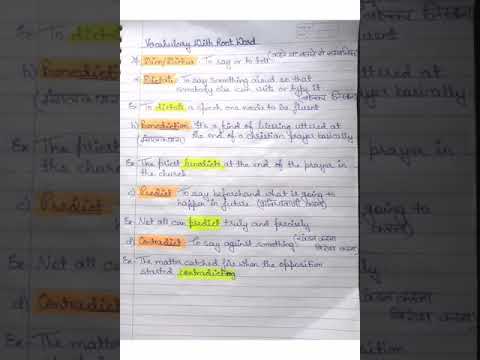 Vocabulary With Root Word
To say or to tell
a) Dictate - To say something aloud so that
somebody else can write or type it
Ex- To dictate a speech one needs to be fluent
b) Benediction - It's a kind of blessing uttered at
the end of a christian prayer basically
Ex- The priest benedicts at the end of the prayer in
the church
c) Predict - To say beforehand what is going to
happen in future (भविष्यवाणी करना)
Ex- Not all can predict truly and precisely
d) Contradict - To say against something
Ex- The matter catched fire when the opposition
started contradicting